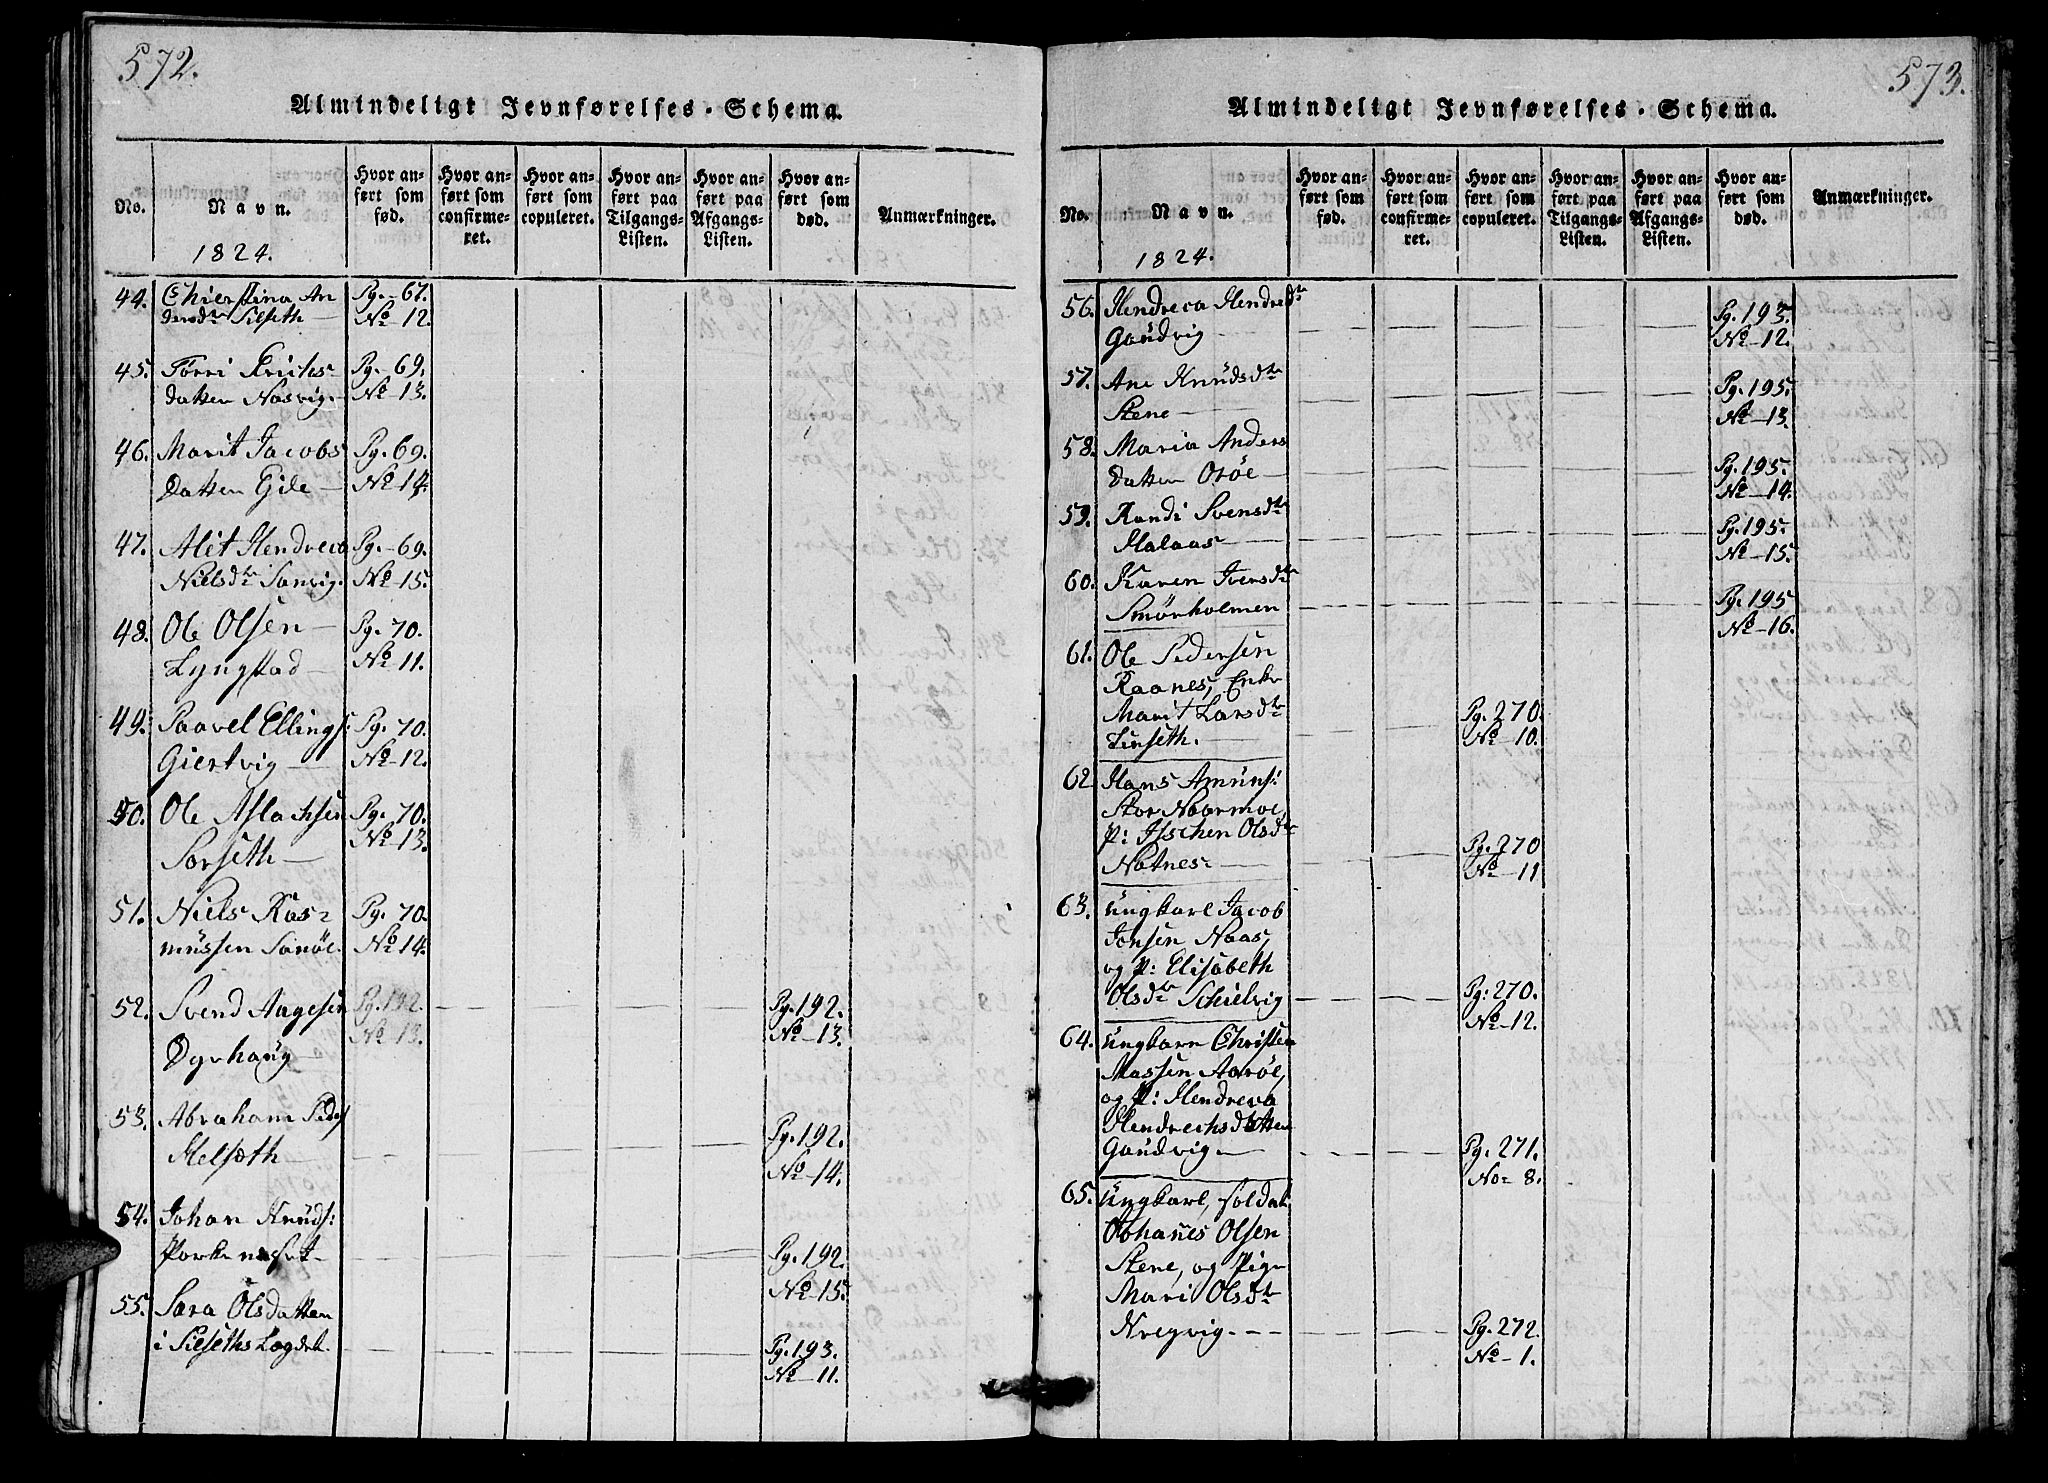 572.
Almindeligt Jevnførelses-Schema.
No.
Navn.
1824.
Hvor anført som fød.
Hvor anført som confirmeret.
Hvor anført som copuleret.
Hvor anført paa Tilgangs-Listen.
Hvor anført paa Afgangs-Listen.
Hvor anført som død.
Anmærkninger.
44. Chierstina An Pg. 67.
dersdtr Silseth No 12.
45. Torri Erichs- Pg. 69.
datten Nasvig No 13.
46. Marit Jacobs Pg. 69.
Datten Eide No 14.
47. Alet Hendreca Pg. 69.
Nielsdtr Sanvig. No 15.
48. Ole Olsen Pg. 70.
Lyngstad No 11.
49. Paavel Ellings: Pg. 70.
Giertvig No 12.
50. Ole Aslachsen Pg. 70.
Sorseth No 13.
51. Niels Ras- Pg. 70.
mussen Sanöe. No 14.
52. Svend Aagesen Pg. 192. Pg. 192.
Dyrhaug No 13. No 13.
53. Abraham Peds Pg. 192.
Helseth No 14.
54. Johan Knuds: Pg. 192.
No 15.
55. Sara Olsdatten Pg. 193.
i Silseths Lægdet. No 11.
573.
Almindeligt Jevnførelses-Schema.
No.
Navn.
1824.
Hvor anført som fød.
Hvor anført som confirmeret.
Hvor anført som copuleret.
Hvor anført paa Tilgangs-Listen.
Hvor anført paa Afgangs-Listen.
Hvor anført som død.
Anmærkninger.
56. Hendreca Hendredtr Pg. 193.
Gaudvig No 12.
57. Ane Knudsdtr Pg. 195.
Stene No 13.
58. Maria Anders Pg. 195.
Datten Otröe No 14.
59. Randi Svensdtr Pg. 195.
Malaas No 15.
60. Karen Iversdtr Pg. 195
Smörholmen No 16.
61. Ole Pedersen
Raanes, Enke
Marit Larsdtr Pg. 270.
Linseth. No 10.
62. Hans Amuns:
Stor Naarmoe,
P: Isschen Olsdtr Pg. 270
Notnes No 11
63. Ungkarl Jacob
Jonsen Naas,
og P: Elisabeth
Olsdtr Schielvig Pg: 270.
No 12.
64. Ungkarn Christen
Massen Aaröe,
og P: Hendreca
Hendrechsdatten
Gaudvig Pg. 271.
No 8.
65. Ungkarl, soldat
Johannes Olsen
Stene, og Pige
Mari Olsdtr
Nregvig. Pg. 272.
No 1.